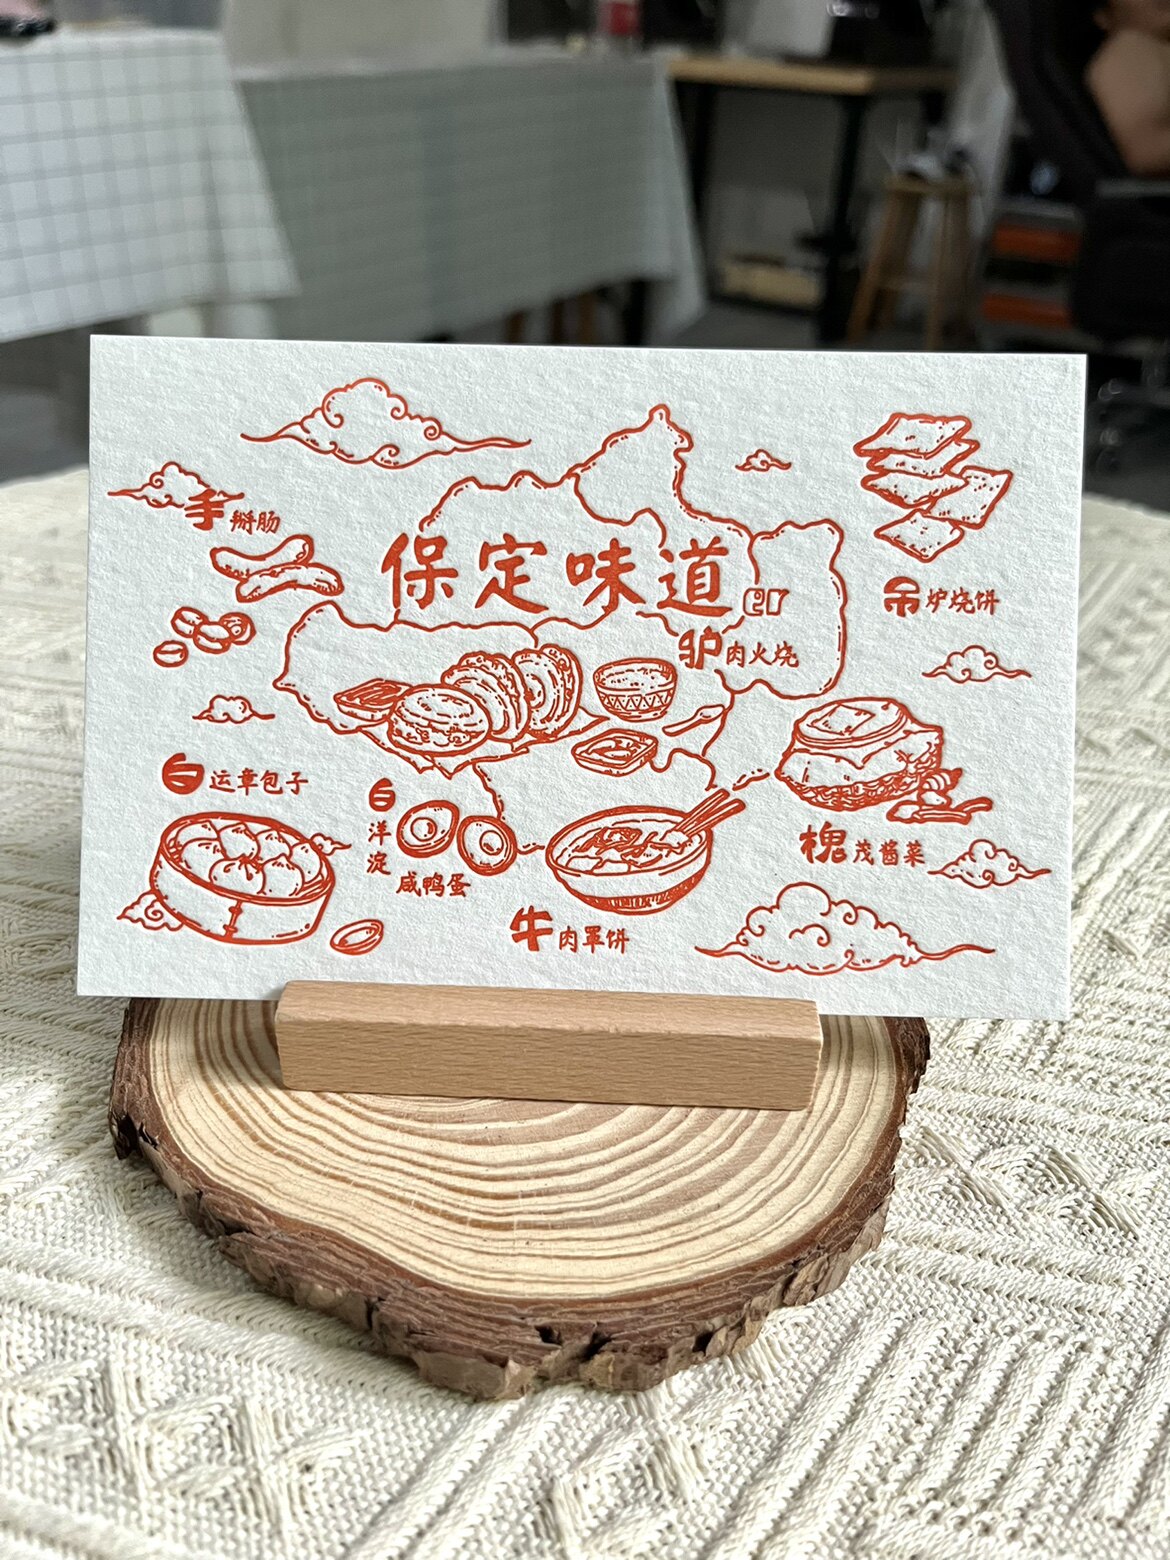 保定味道er
手掰肠
吊炉烧饼
驴肉火烧
白运章包子
白洋淀
咸鸭蛋
槐茂酱菜
牛肉罩饼